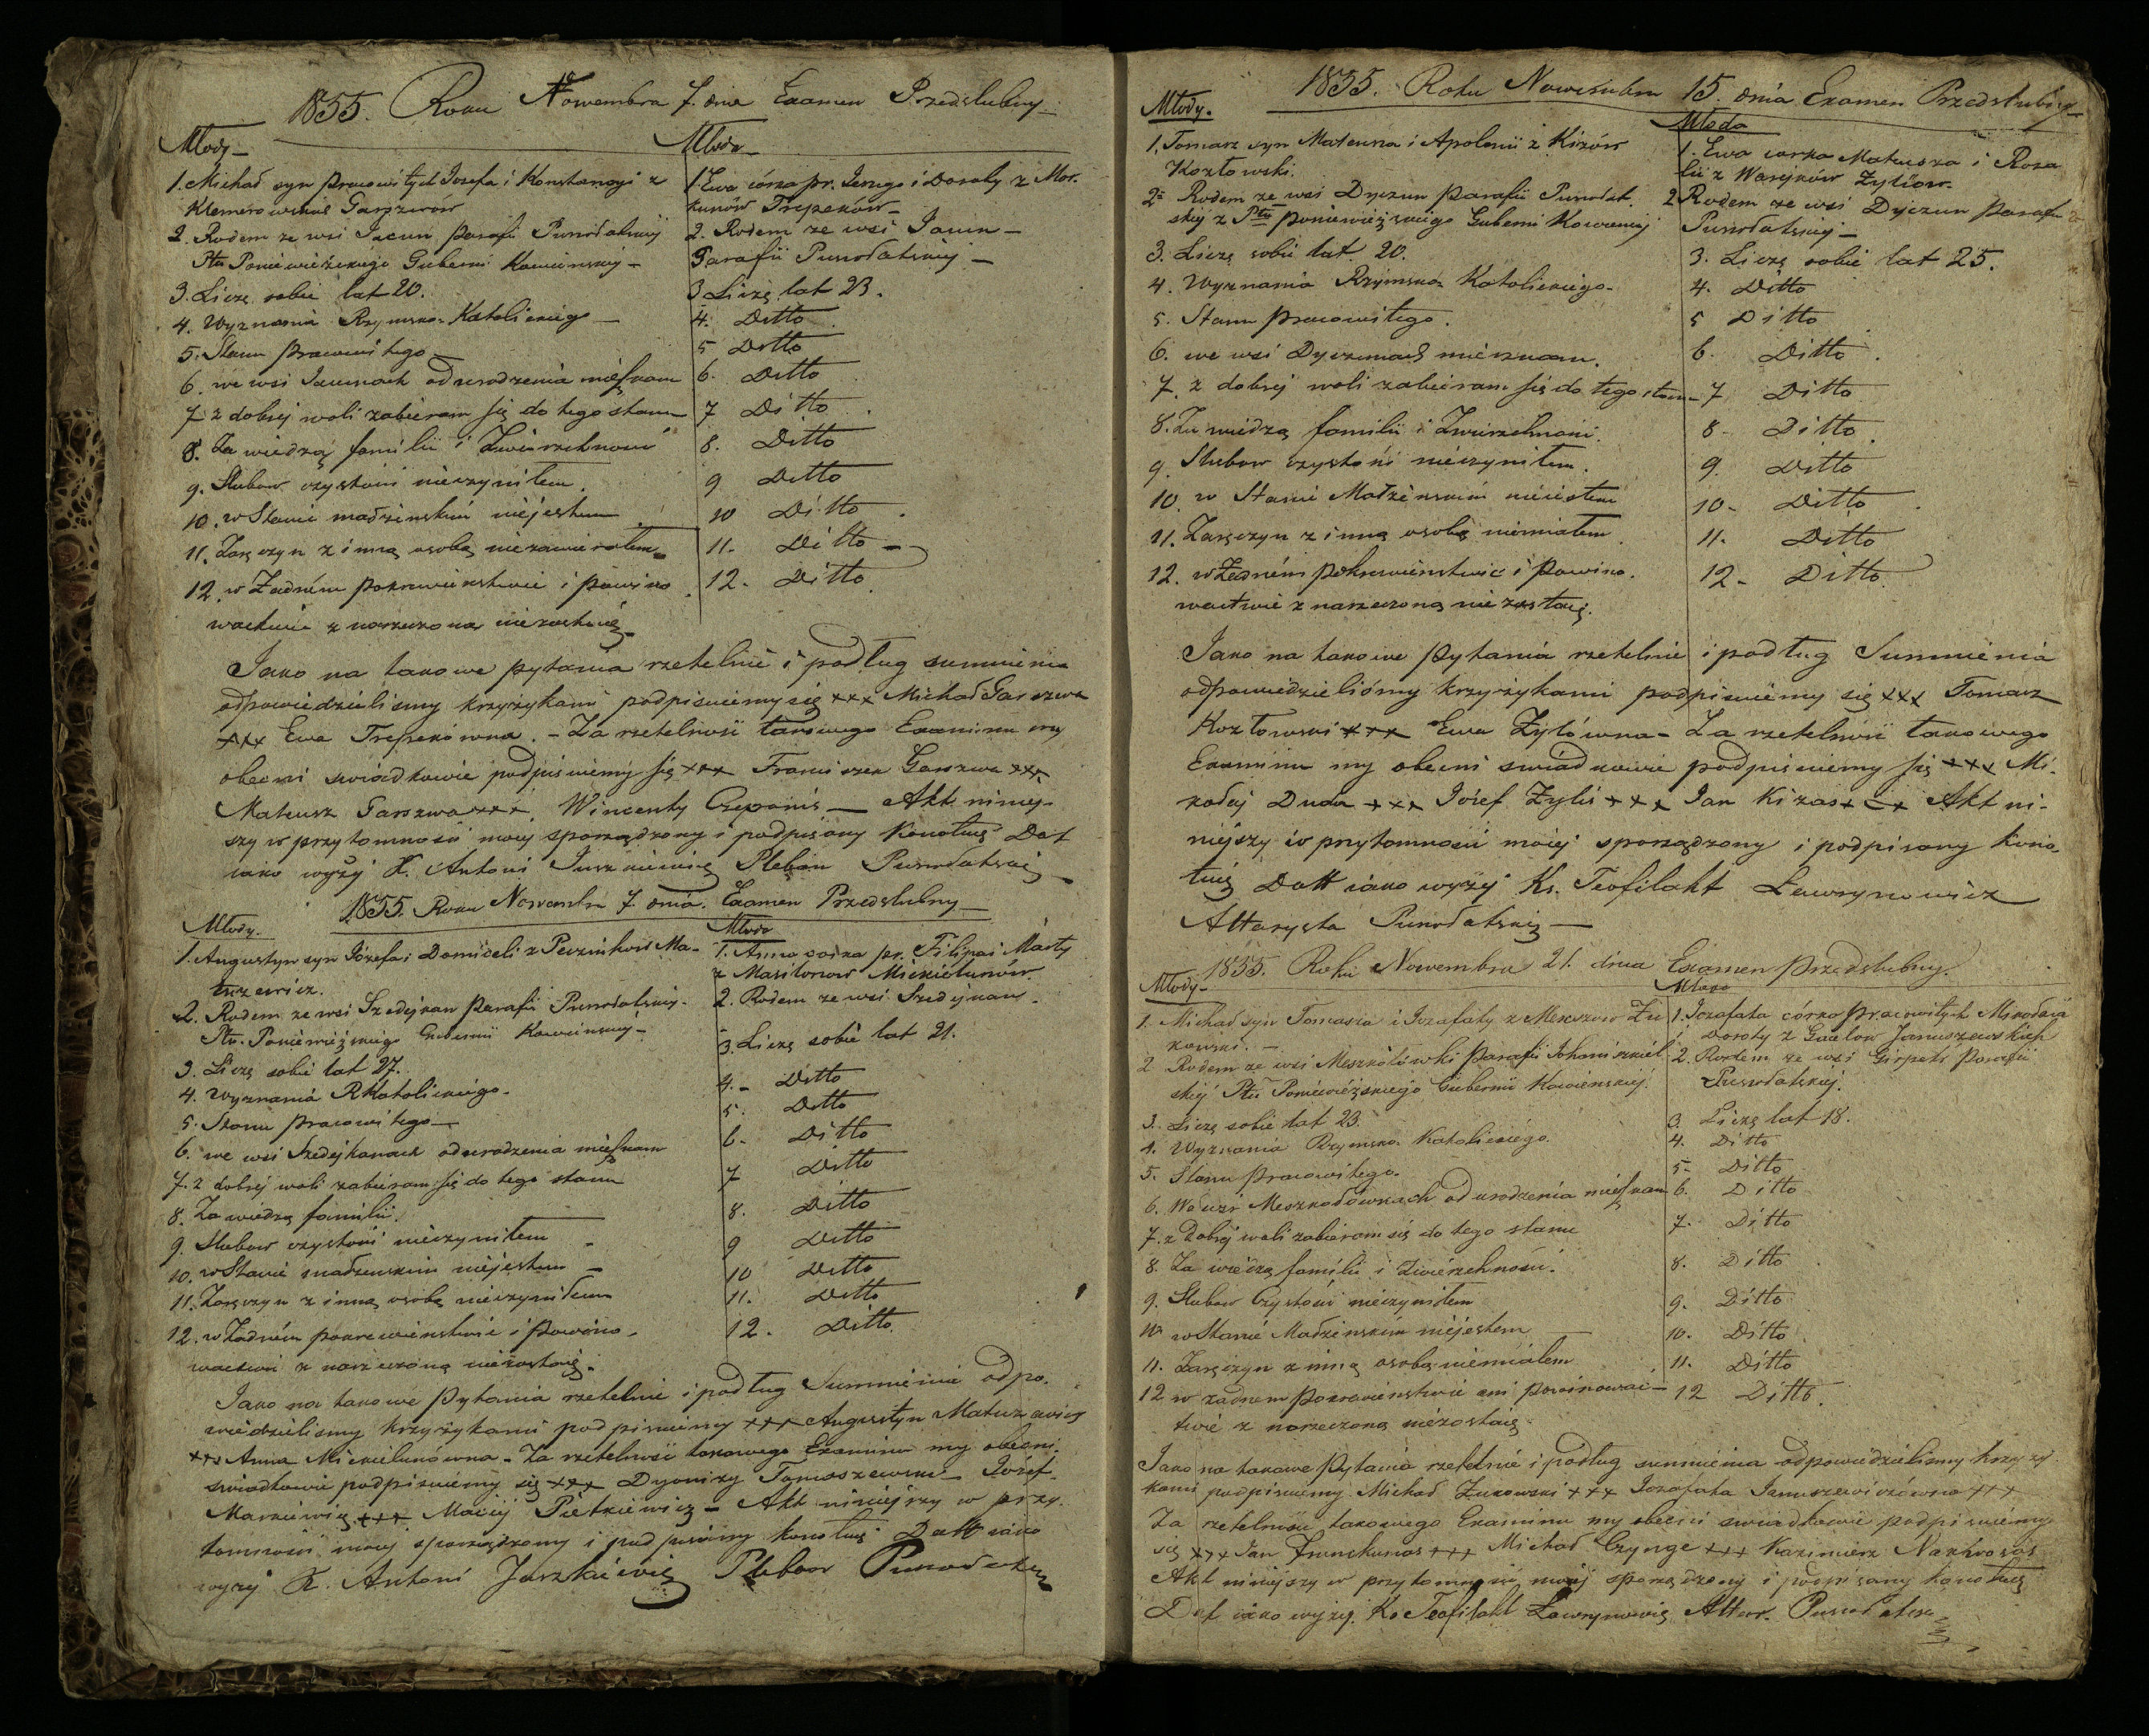 1855. Roku Nowembra 7. dnia Examen Przedslubny
Młody
Młoda
1. Michał syn pracowitych Jozefa i Konstancyi z
Klemerowiczów Garszwow
2. Rodem ze wsi Jacun Parafii Puszołatskiej
Ptu Poniewieżskiego Gubernii Kowienskiej
3. Liczę sobie lat 20.
4. Wyznania Rzymsko-Katolickiego
5. Stanu pracowitego
6. we wsi Jacunach od urodzenia mieszkam
7 z dobrej woli zabieram się do tego stanu
8. Za wiedzą familii i Zwierzchnosci
9. Slubow czystości nieczyniłem.
10. w Stanie małżenskim niejestem
11. Zaręczyn z inną osobą niezawierałem
12. w Żadném pokrewienstwie i powino
wactwie z narzeczoną niezostaię
1 Ewa córka pr. Jerzego i Doroty z Mor.
kunów Trepeków
2. Rodem ze wsi Jacun
Parafii Puszołatskiej
3 Liczę lat 23.
4. Ditto
5 Ditto
6. Ditto
7 Ditto
8. Ditto
9 Ditto
10 Ditto
11. Ditto
12. Ditto
Jako na takowe pytania rzetelnie i podług sumnienia
odpowiedzielismy krzyżykami podpisuiemy się xxx Michał Garszwa
xxx Ewa Trepekówna. - Za rzetelność takowego Examinu my
obecni swiadkowie podpisuiemy się xxx Franciszek Garszwa xxx
Mateusz Garszwa xxx Wincenty Czeponis Akt niniey-
szy w przytomności moiej sporządzony i podpisany Konotuię Dat
iako wyżej X. Antoni Juszkiewicz Pleban Puszołatski
1855. Roku Nowembra 7. dnia. Examen Przedslubny
Młody.
Młoda
1. Augustyn syn Józefa i Domiceli z Peczinkow Ma-
tuzewicz.
2. Rodem ze wsi Szedejkan Parafii Puszołatskiej.
Ptu. Poniewieżskiego Gubernii Kowienskiej
3. Liczę sobie lat 27.
4. Wyznania RKatolickiego.
5. Stanu pracowitego
6. we wsi Szedejkanach od urodzenia mieszkam
7. z dobrej woli zabieram się do tego stanu
8. Za wiedzą familii.
9. Slubow czystości nieczyniłem
10. w Stanie małżenskim niejestem
11. Zaręczyn z inną osobą nieczyniłem
12. w Żadném pokrewienstwie i Powino.
wactwie z narzeczoną niezostaię.
1. Anna córka pr. Filipa i Marty
z Masilonow Mickielunów.
2. Rodem ze wsi Szedejkan.
3. Liczę sobie lat 21.
4. Ditto
5. Ditto
6. Ditto
7 Ditto
8. Ditto
9 Ditto
10 Ditto
11. Ditto
12. Ditto
Jako na takowe Pytania rzetelnie i podług Sumnienia odpo.
wiedzielismy krzyżykami podpisuiemy xxx Augustyn Matuzewicz
xxx Anna Mickielunówna - Za rzetelność takowego Examinu my obecni
swiadkowie podpisuiemy się xxx Dyonizy Tomaszewski Józef
Markiewicz xxx Maciej Pietkiewicz - Akt niniejszy w przy.
tomności moiej sporządzony i podpisany konotuię Datt iako
wyżej X. Antoni Juszkiewicz Pleban Puszołatski
1855. Roku Nowembra 15. dnia Examen Przedslubny
Młody.
Młoda
1. Tomasz syn Mateusza i Apolonii z Kizów
Kozłowski.
2 Rodem ze wsi Dyczun Parafii Puszołat.
skiej z Ptu Poniewieżskiego Guberni Kowienskiej
3. Liczę sobie lat 20.
4. Wyznania Rzymsko Katolickiego
5. Stanu pracowitego.
6. we wsi Dyczunach mieszkam.
7. z dobrej woli zabieram się do tego stanu
8. Za wiedzą familii i Zwierzchnosci.
9. Slubow czystości nieczyniłem.
10. w Stanie Małżenskim niejestem
11. Zaręczyn z inną osobą niemiałem
12. w Żadném pokrewienstwie i Powino.
wactwie z narzeczoną niezostaię.
1. Ewa corka Mateusza i Roza
lii z Wasyków Żyliow.
2 Rodem ze wsi Dyczun Parafii
Puszołatskiej
3. Liczę sobie lat 25.
4. Ditto
5 Ditto
6. Ditto
7 Ditto
8- Ditto
9. Ditto
10- Ditto
11. Ditto
12- Ditto
Jako na takowe Pytania rzetelnie i podług Sumnienia
odpowiedzieliśmy krzyżykami podpisuiemy się xxx Tomasz
Kozłowski xxx Ewa Żylówna - Za rzetelność takowego
Examinu my obecni swiadkowie podpisuiemy się xxx Mi.
kołaj Duda xxx Józef Żylis xxx Jan Kizas xxx Akt ni-
niejszy w przytomności moiej sporządzony i podpisany kono
tuię Datt iako wyżej Ks. Teofilakt Ławrynowicz
Altarysta Puszołatski
1855. Roku Nowembra 21. dnia Examen przedslubny.
Młody
Młoda
1. Michał syn Tomasza i Jozafaty z Mexszow Żu
kowski.
2 Rodem ze wsi Meszkołówki Parafii Johaniszkiel
skiej Ptu Poniewieżskiego Gubernii Kowienskiej.
3. Liczę sobie lat 23.
4. Wyznania Rzymsko Katolickiego.
5. Stanu pracowitego.
6. We wsi Meszkołówkach od urodzenia mieszkam
7. z Dobrej woli zabieram się do tego stanu
8. Za wiedzą familii i Zwierzchnosci.
9. Slubow Czystości nieczyniłem
10 w Stanie Małżenskim niejestem
11. Zaręczyn z inną osobą niemiałem
12 w żadnem pokrewienstwie ani powinowac
twie z narzeczoną niezostaię
1. Jozafata córka pracowitych Mikołaia
i Doroty z Gaelow Januszewskich
2. Rodem ze wsi Girpeki Parafii
Puszołatskiej.
3. Liczę lat 18.
4. Ditto
5- Ditto
6. Ditto
7. Ditto
8. Ditto
9. Ditto
10. Ditto
11. Ditto
12 Ditto.
Jako na takowe Pytania rzetelnie i podług sumnienia odpowiedzielismy krzyży
kami podpisuiemy Michał Żukowski xxx Jozafata Januszewiczówna xxx
Za rzetelność takowego Examinu my obecni swiadkowie podpisuiemy
się xxx Jan Trunskunas xxx Michał Czynge xxx Kazimierz
Akt niniejszy w przytomności moiej sporządzony i podpisany konotuię
Dat iako wyżej. Ks Teofilakt Ławrynowicz Altar. Puszołatski